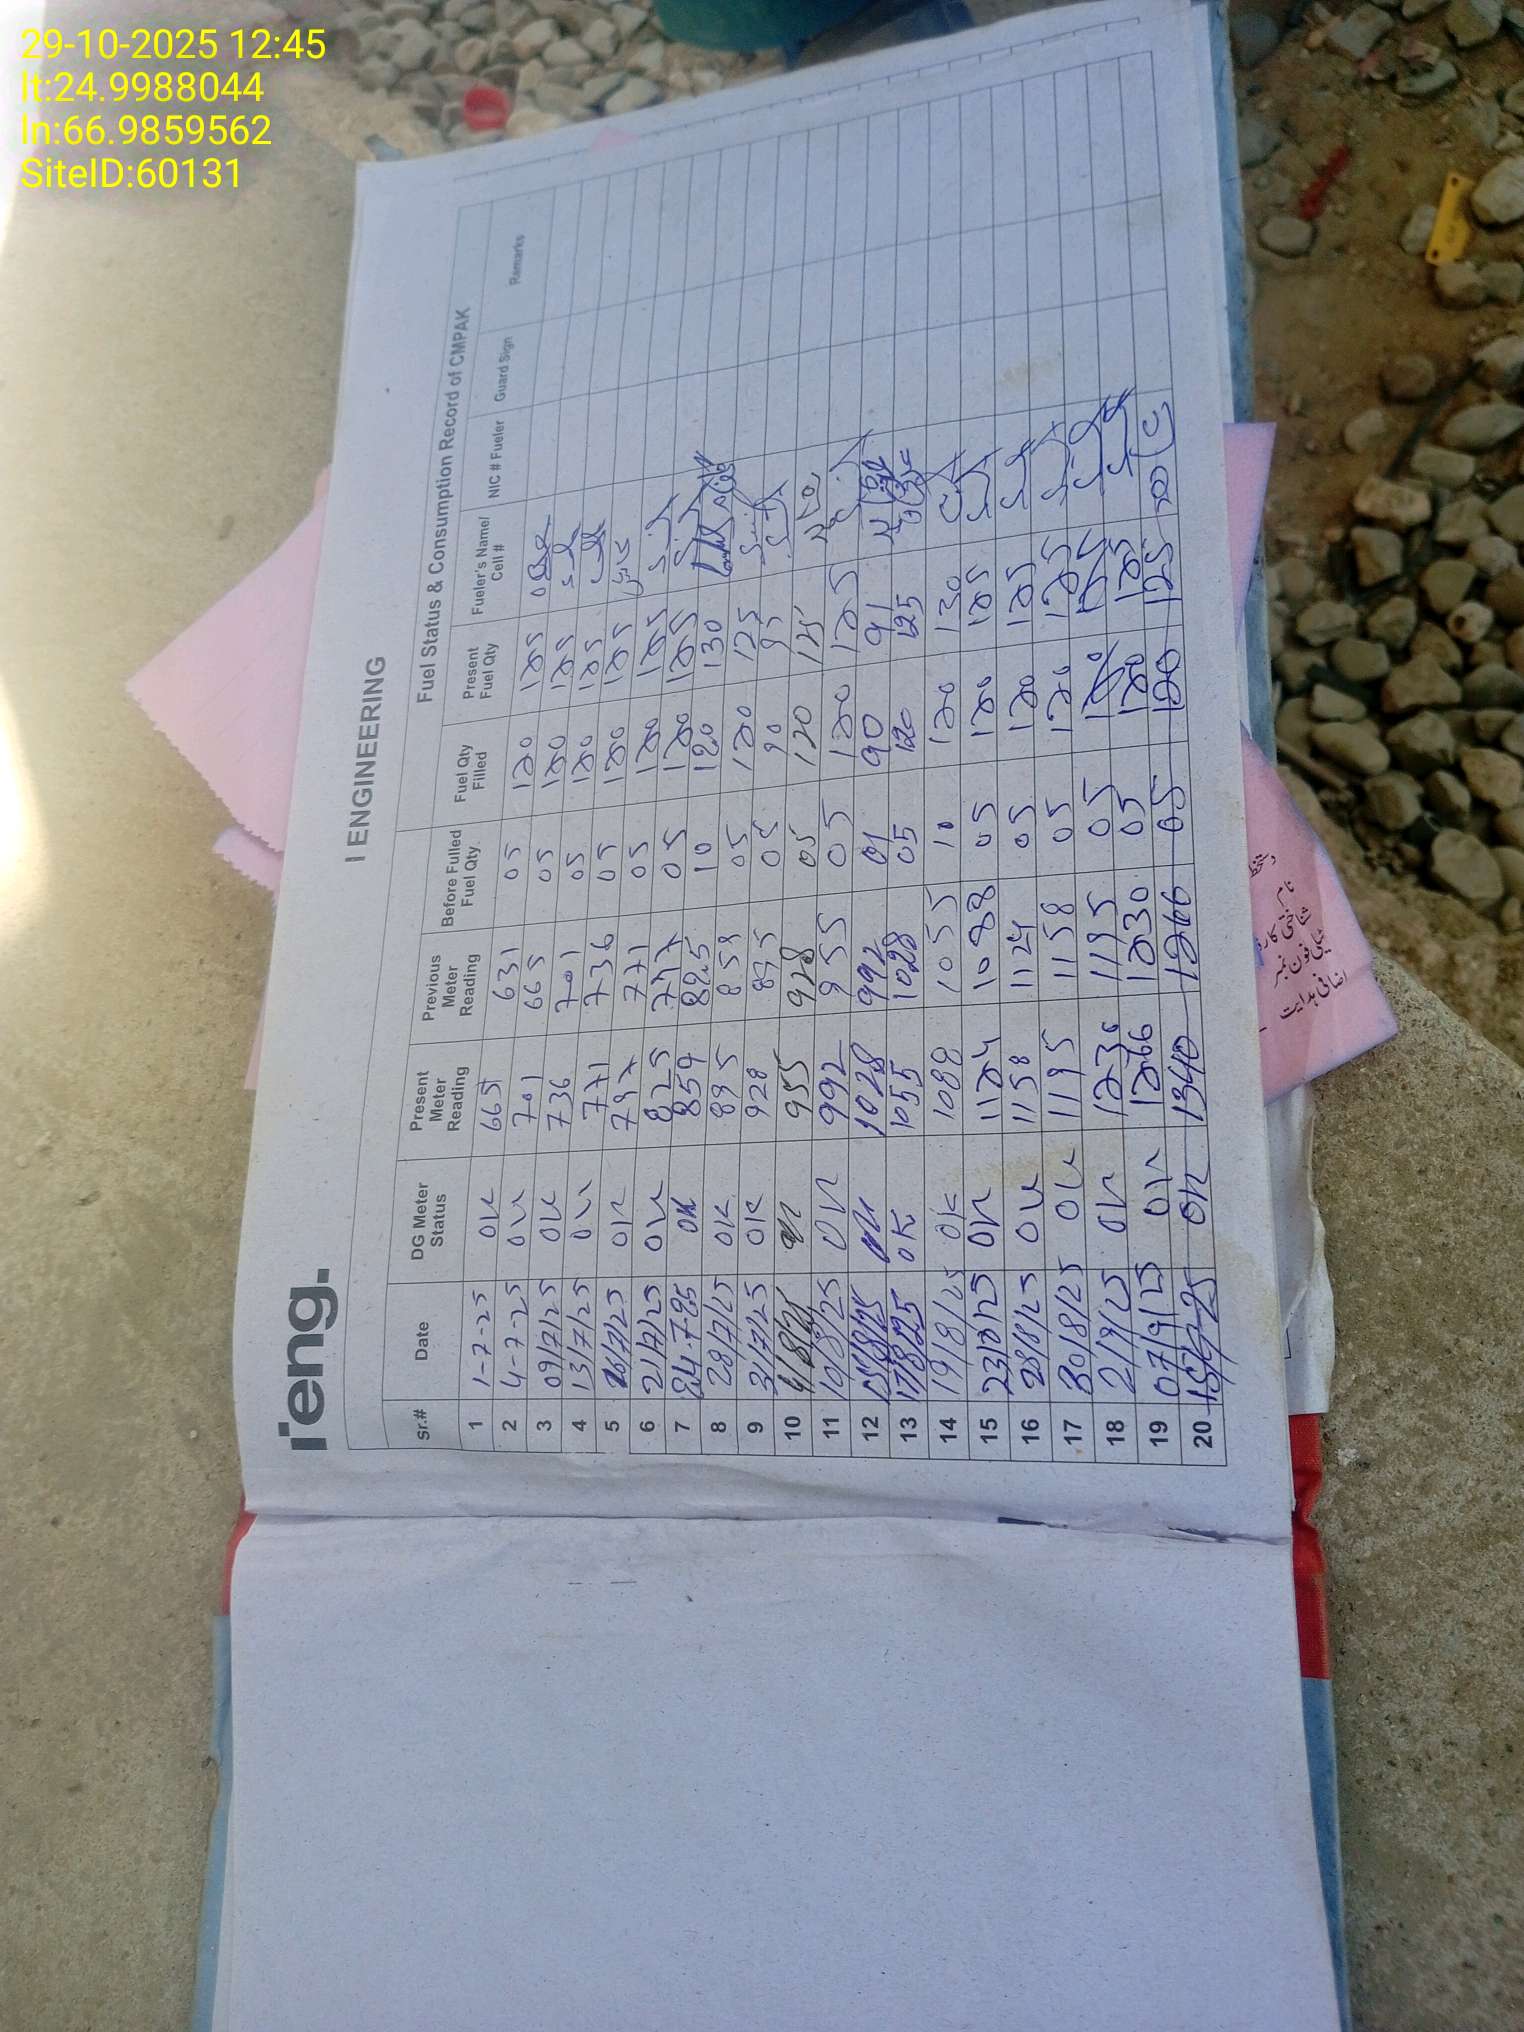 29-10-2025 12:45
lt:24.9988044
ln:66.9859562
SiteID:60131
i'eng.
I ENGINEERING
Fuel Status & Consumption Record of CMPAK
Sr.# Date DG Meter Status Present Meter Reading Previous Meter Reading Before Fulled Fuel Qty. Fuel Qty Filled Present Fuel Qty Fueler's Name/ Cell # NIC # Fueler Guard Sign Remarks
1 1-7-25 OK 665 631 05 120 125
2 4-7-25 OK 701 665 05 120 125
3 09/7/25 OK 736 701 05 120 125
4 13/7/25 OK 771 736 05 120 125
5 16/7/25 OK 797 771 05 120 125
6 21/7/25 OK 825 797 05 120 125
7 24-7-25 OK 859 825 10 120 130
8 28/7/25 OK 895 859 05 120 125
9 31/7/25 OK 928 895 05 90 95
10 4/8/25 OK 955 928 05 120 125
11 10/8/25 OK 992 955 05 120 125
12 15/8/25 OK 1028 992 01 90 91
13 17/8/25 OK 1055 1028 05 120 125
14 19/8/25 OK 1088 1055 10 120 130
15 23/8/25 OK 1124 1088 05 120 125
16 28/8/25 OK 1158 1124 05 120 125
17 30/8/25 OK 1195 1158 05 120 125
18 2/9/25 OK 1230 1195 05 120 125
19 07/9/25 OK 1266 1230 05 120 125
20 OK 1340 1266 05 120 125
دستخط
نام
شناختی کارڈ
ٹیلی فون نمبر
اضافی ہدایت